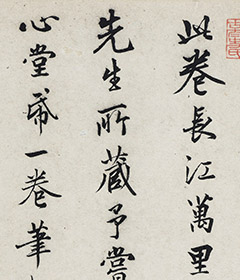 此卷長江萬里
先生所藏予嘗
心堂帋一卷筆